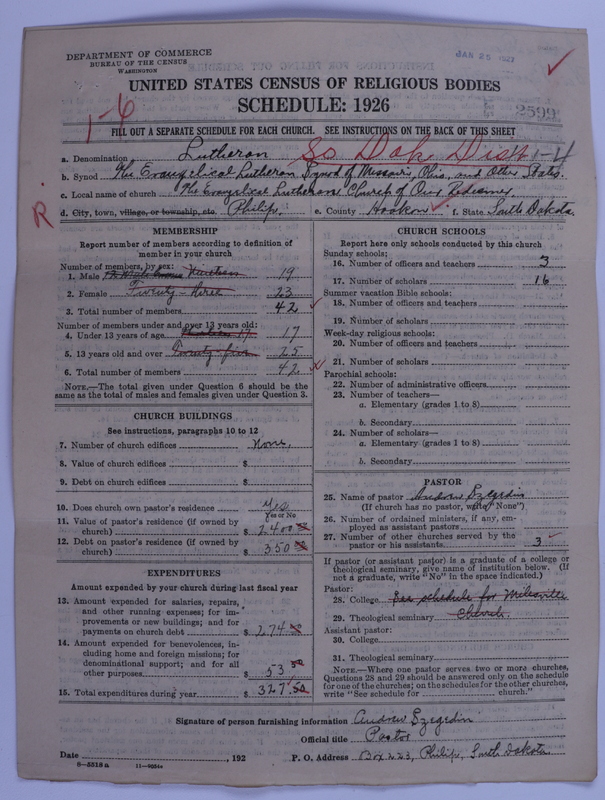 DEPARTMENT OF COMMERCE
BUREAU OF THE CENSUS
WASHINGTON
JAN 25 1927
UNITED STATES CENSUS OF RELIGIOUS BODIES
SCHEDULE: 1926
2599
1-6
FILL OUT A SEPARATE SCHEDULE FOR EACH CHURCH. SEE INSTRUCTIONS ON THE BACK OF THIS SHEET
So Dak Dist
a. Denomination Lutheran
b. Synod The Evangelical Lutheran Synod of Missouri, Ohio, and Other States.
c. Local name of church The Evangelical Lutheran Church of Our Redeemer
R.
d. City, town, village, or township, etc. Philip. e. County Haakon f. State South Dakota.
MEMBERSHIP
Report number of members according to definition of
member in your church
Number of members, by sex:
1. Male Nineteen 19
2. Female Twenty-three 23
3. Total number of members 42
Number of members under and over 13 years old:
4. Under 13 years of age 17 17
5. 13 years old and over Twenty-five 25
6. Total number of members 42
NOTE.—The total given under Question 6 should be
same as the total of males and females given under Question 3.
CHURCH BUILDINGS
See instructions, paragraphs 10 to 12
7. Number of church edifices None.
8. Value of church edifices $
9. Debt on church edifices $
10. Does church own pastor's residence Yes
Yes or No
11. Value of pastor's residence (if owned by
church) $ 2400
12. Debt on pastor's residence (if owned by
church) $ 350
EXPENDITURES
Amount expended by your church during last fiscal year
13. Amount expended for salaries, repairs,
and other running expenses; for im-
provements or new buildings; and for
payments on church debt $ 274
14. Amount expended for benevolences, in-
cluding home and foreign missions; for
denominational support; and for all
other purposes $ 53 50
15. Total expenditures during year $ 327.50
CHURCH SCHOOLS
Report here only schools conducted by this church
Sunday schools:
16. Number of officers and teachers 3
17. Number of scholars 16
Summer vacation Bible schools:
18. Number of officers and teachers
19. Number of scholars
Week-day religious schools:
20. Number of officers and teachers
21. Number of scholars
Parochial schools:
22. Number of administrative officers
23. Number of teachers—
a. Elementary (grades 1 to 8)
b. Secondary
24. Number of scholars—
a. Elementary (grades 1 to 8)
b. Secondary
PASTOR
25. Name of pastor Andrew Szegedin
(If church has no pastor, write "None")
26. Number of ordained ministers, if any, em-
ployed as assistant pastors
27. Number of other churches served by the
pastor or his assistants 3
If pastor (or assistant pastor) is a graduate of a college or
theological seminary, give name of institution below. (If
not a graduate, write "No" in the space indicated.)
Pastor:
28. College See schedule for Milesville
29. Theological seminary Church.
Assistant pastor:
30. College
31. Theological seminary
NOTE.—Where one pastor serves two or more churches,
Questions 28 and 29 should be answered only on the schedule
for one of the churches; on the schedules for the other churches,
write "See schedule for church."
Signature of person furnishing information Andrew Szegedin
Official title Pastor
Date , 192 P. O. Address Box 223, Philip, South Dakota
8-5518a